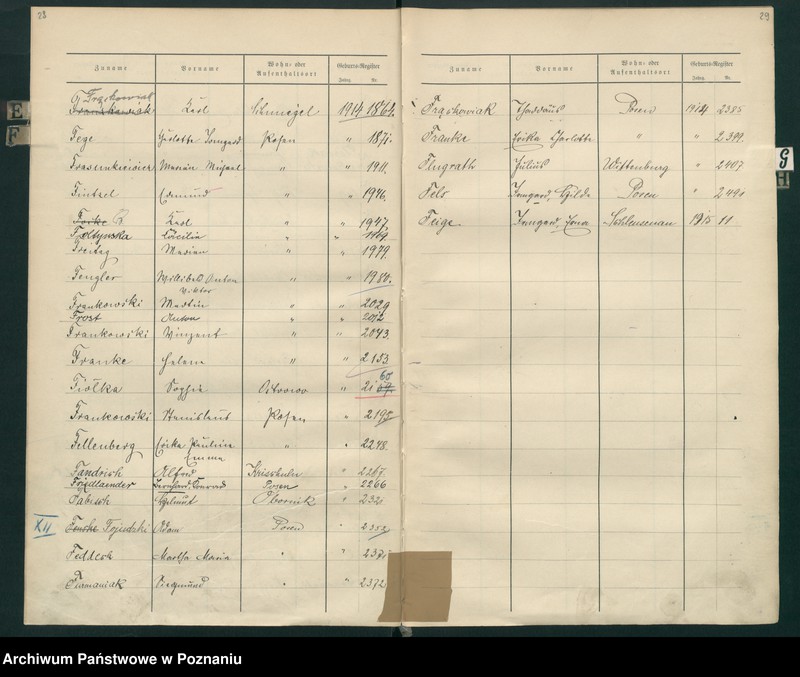 28
Zuname Vorname Wohn- oder Aufenthaltsort Geburts-Register
Jahrg. Nr.
Frąskowiak
Karl Schmiegel 1914 1864.
Fege Charlotte Irmgard Posen " 1871.
Marian Michael " " 1911.
Edmund " " 1946.
Karl " " 1947.
Foltynska Cäcilia " " 1969.
Freitag Marian " " 1979.
Fengler Willibald Anton " 1980.
Viktor
Frankowski Martin " " 2029
Frost Anton " " 2012
Frankowski Vinzent " " 2043.
Franke Helene " " 2153
60
Fiolka Sophie Ostrowo " 2159.
Frankowski Stanislaus Posen " 2190
Fellenberg Erika Pauline " " 2248.
Emma
Alfred " 2267.
Friedlaender Bernhard, Konrad Posen " 2266
Fabisch Helmut Obornik " 232
XII Fojudzki Adam Posen " 2352
Feddeck Martha Maria " " 237
Furmaniak Siegmund " " 2372
E
F
29
Zuname Vorname Wohn- oder Aufenthaltsort Geburts-Register
Jahrg. Nr.
Frąskowiak Thaddäus Posen 1914 2385
Franke Erika Charlotte " " 2399.
Flugrath Julius Wittenburg " 2407
Fels Irmgard, Hilda Posen " 2491
Feige Irmgard, Erna 1915 11
G
H
Archiwum Państwowe w Poznaniu